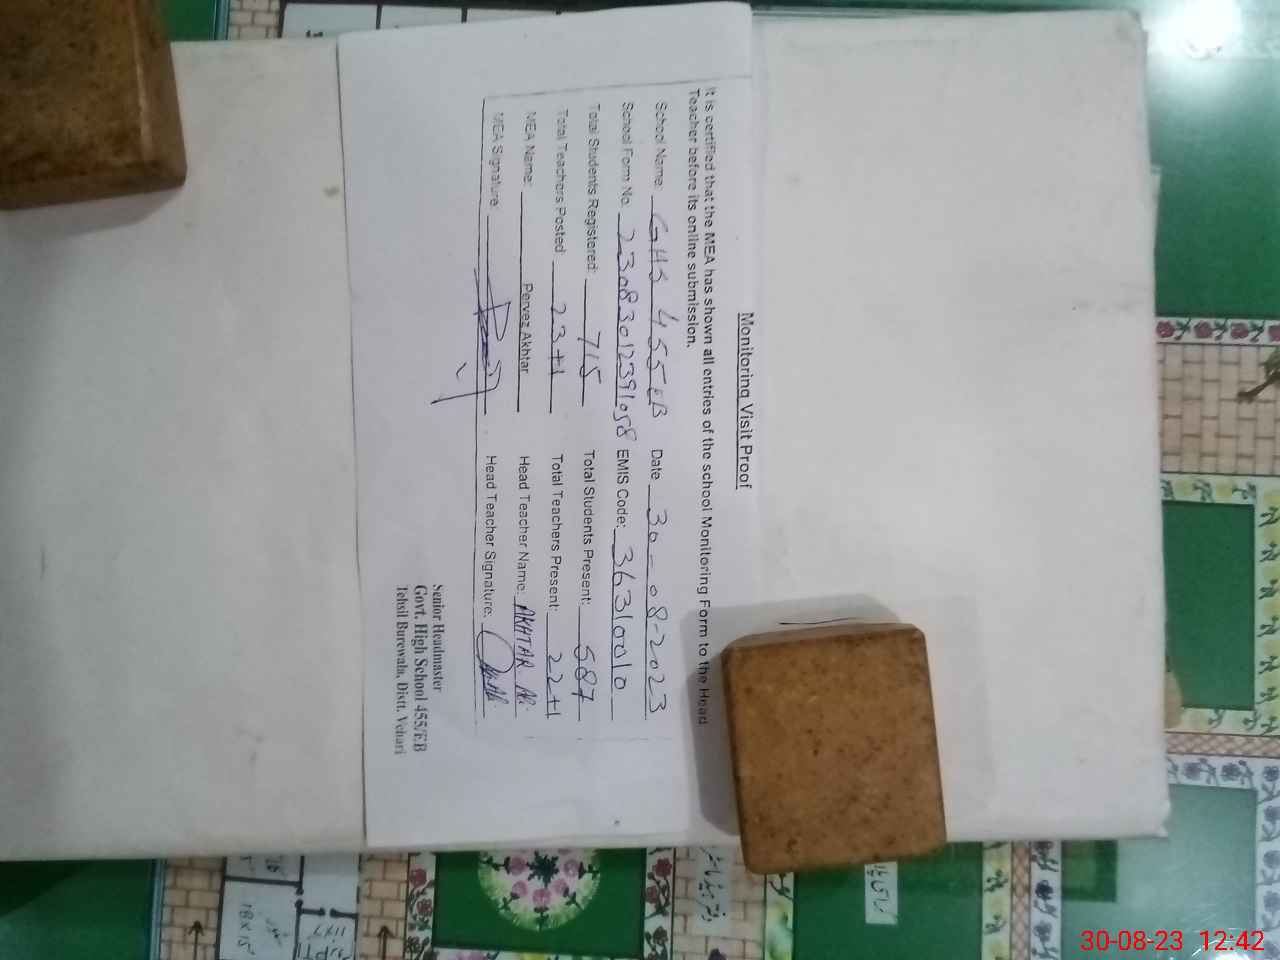 Monitoring Visit Proof
It is certified that the MEA has shown all entries of the school Monitoring Form to the Head
Teacher before its online submission.
School Name: GHS 455 EB Date 30-08-2023
School Form No. 23083012391058 EMIS Code: 36310010
Total Students Registered: 715 Total Students Present: 587
Total Teachers Posted 23+1 Total Teachers Present: 22+1
MEA Name: Pervez Akhtar Head Teacher Name: AKHTAR Ali
MEA Signature: Head Teacher Signature:
Senior Headmaster
Govt. High School 455/EB
Tehsil Burewala, Distt. Vehari
18 X 15
30-08-23 12:42